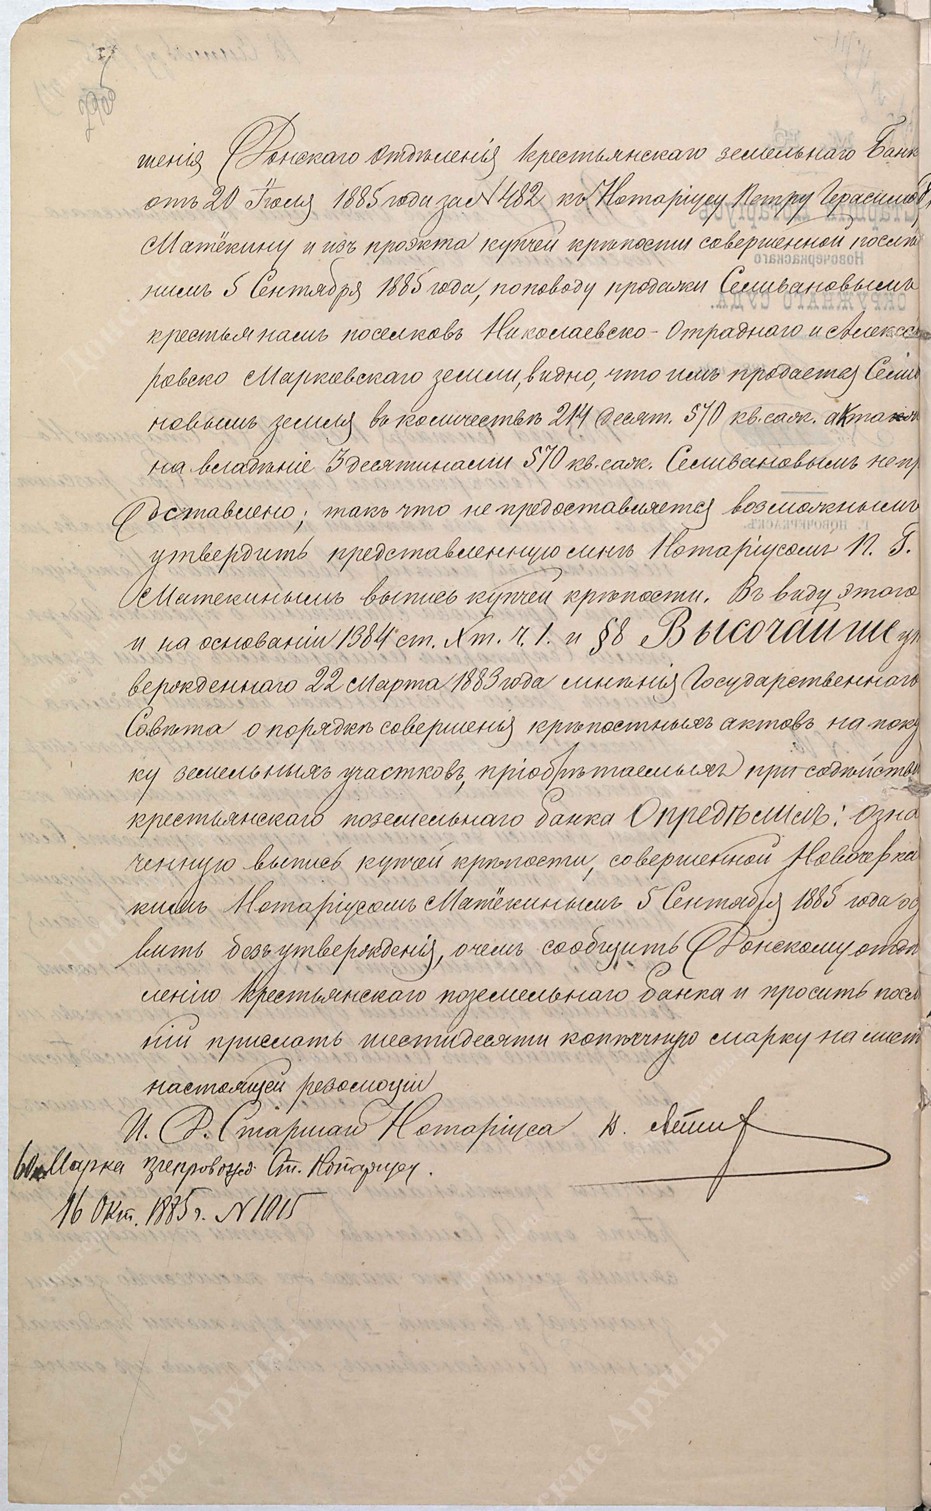 шенія Донскаго отдѣленія крестьянскаго земельнаго Банк
отъ 20 Іюля 1885 года за N 482 къ Нотаріусу Петру Герасимов
Матёкину и изъ проэкта купчей крѣпости совершенной послѣд
нимъ 5 Сентября 1885 года, по поводу продажи Селивановымъ
крестьянамъ поселковъ Николаевско-Отраднаго и Алекса
ровско Марковскаго земли, видно, что имъ продается Сели
новымъ земля въ количествѣ 214 десят. 570 кв. саж. акта
на владѣніе 3 десятинами 570 кв. саж. Селивановымъ не пр
доставлено; такъ что не предоставляется возможнымъ
утвердить представленную мнѣ Нотаріусомъ П. Г.
Матёкинымъ выпись купчей крѣпости. Въ виду этого
и на основаніи 1384 ст. X т. ч. 1. и § 8 Высочайше ут
вержденнаго 22 Марта 1883 года мнѣнія Государственнаго
Совѣта о порядкѣ совершенія крѣпостныхъ актовъ на поку
ку земельныхъ участковъ, пріобрѣтаемыхъ при содѣйствіи
крестьянскаго поземельнаго банка Опредѣлилъ: озна
ченную выпись купчей крѣпости, совершенной Новочерка
кимъ Нотаріусомъ Матёкинымъ 5 Сентября 1885 года ос
вить безъ утвержденія, о чемъ сообщить Донскому отдѣ
ленію крестьянскаго поземельнаго банка и просить посл
ній прислать шестидесяти копѣечную марку на листъ
настоящей резолюціи
И. Д. Старшаго Нотаріуса
60 к. Марка препровожд. Ст. Нотаріусу.
16 Окт. 1885 г. N 1015